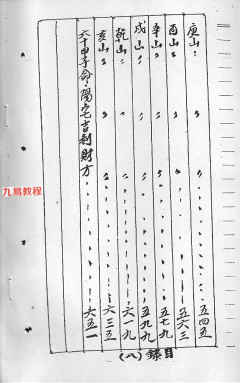 庚山：〃〃……五四五
酉山：〃〃……五六三
辛山：〃〃……五七九
戌山：〃〃……五九九
乾山：〃〃……六一九
亥山：〃〃……六三五
六十甲子命：陽宅吉利財方……六五一
目錄(八)
九易教程